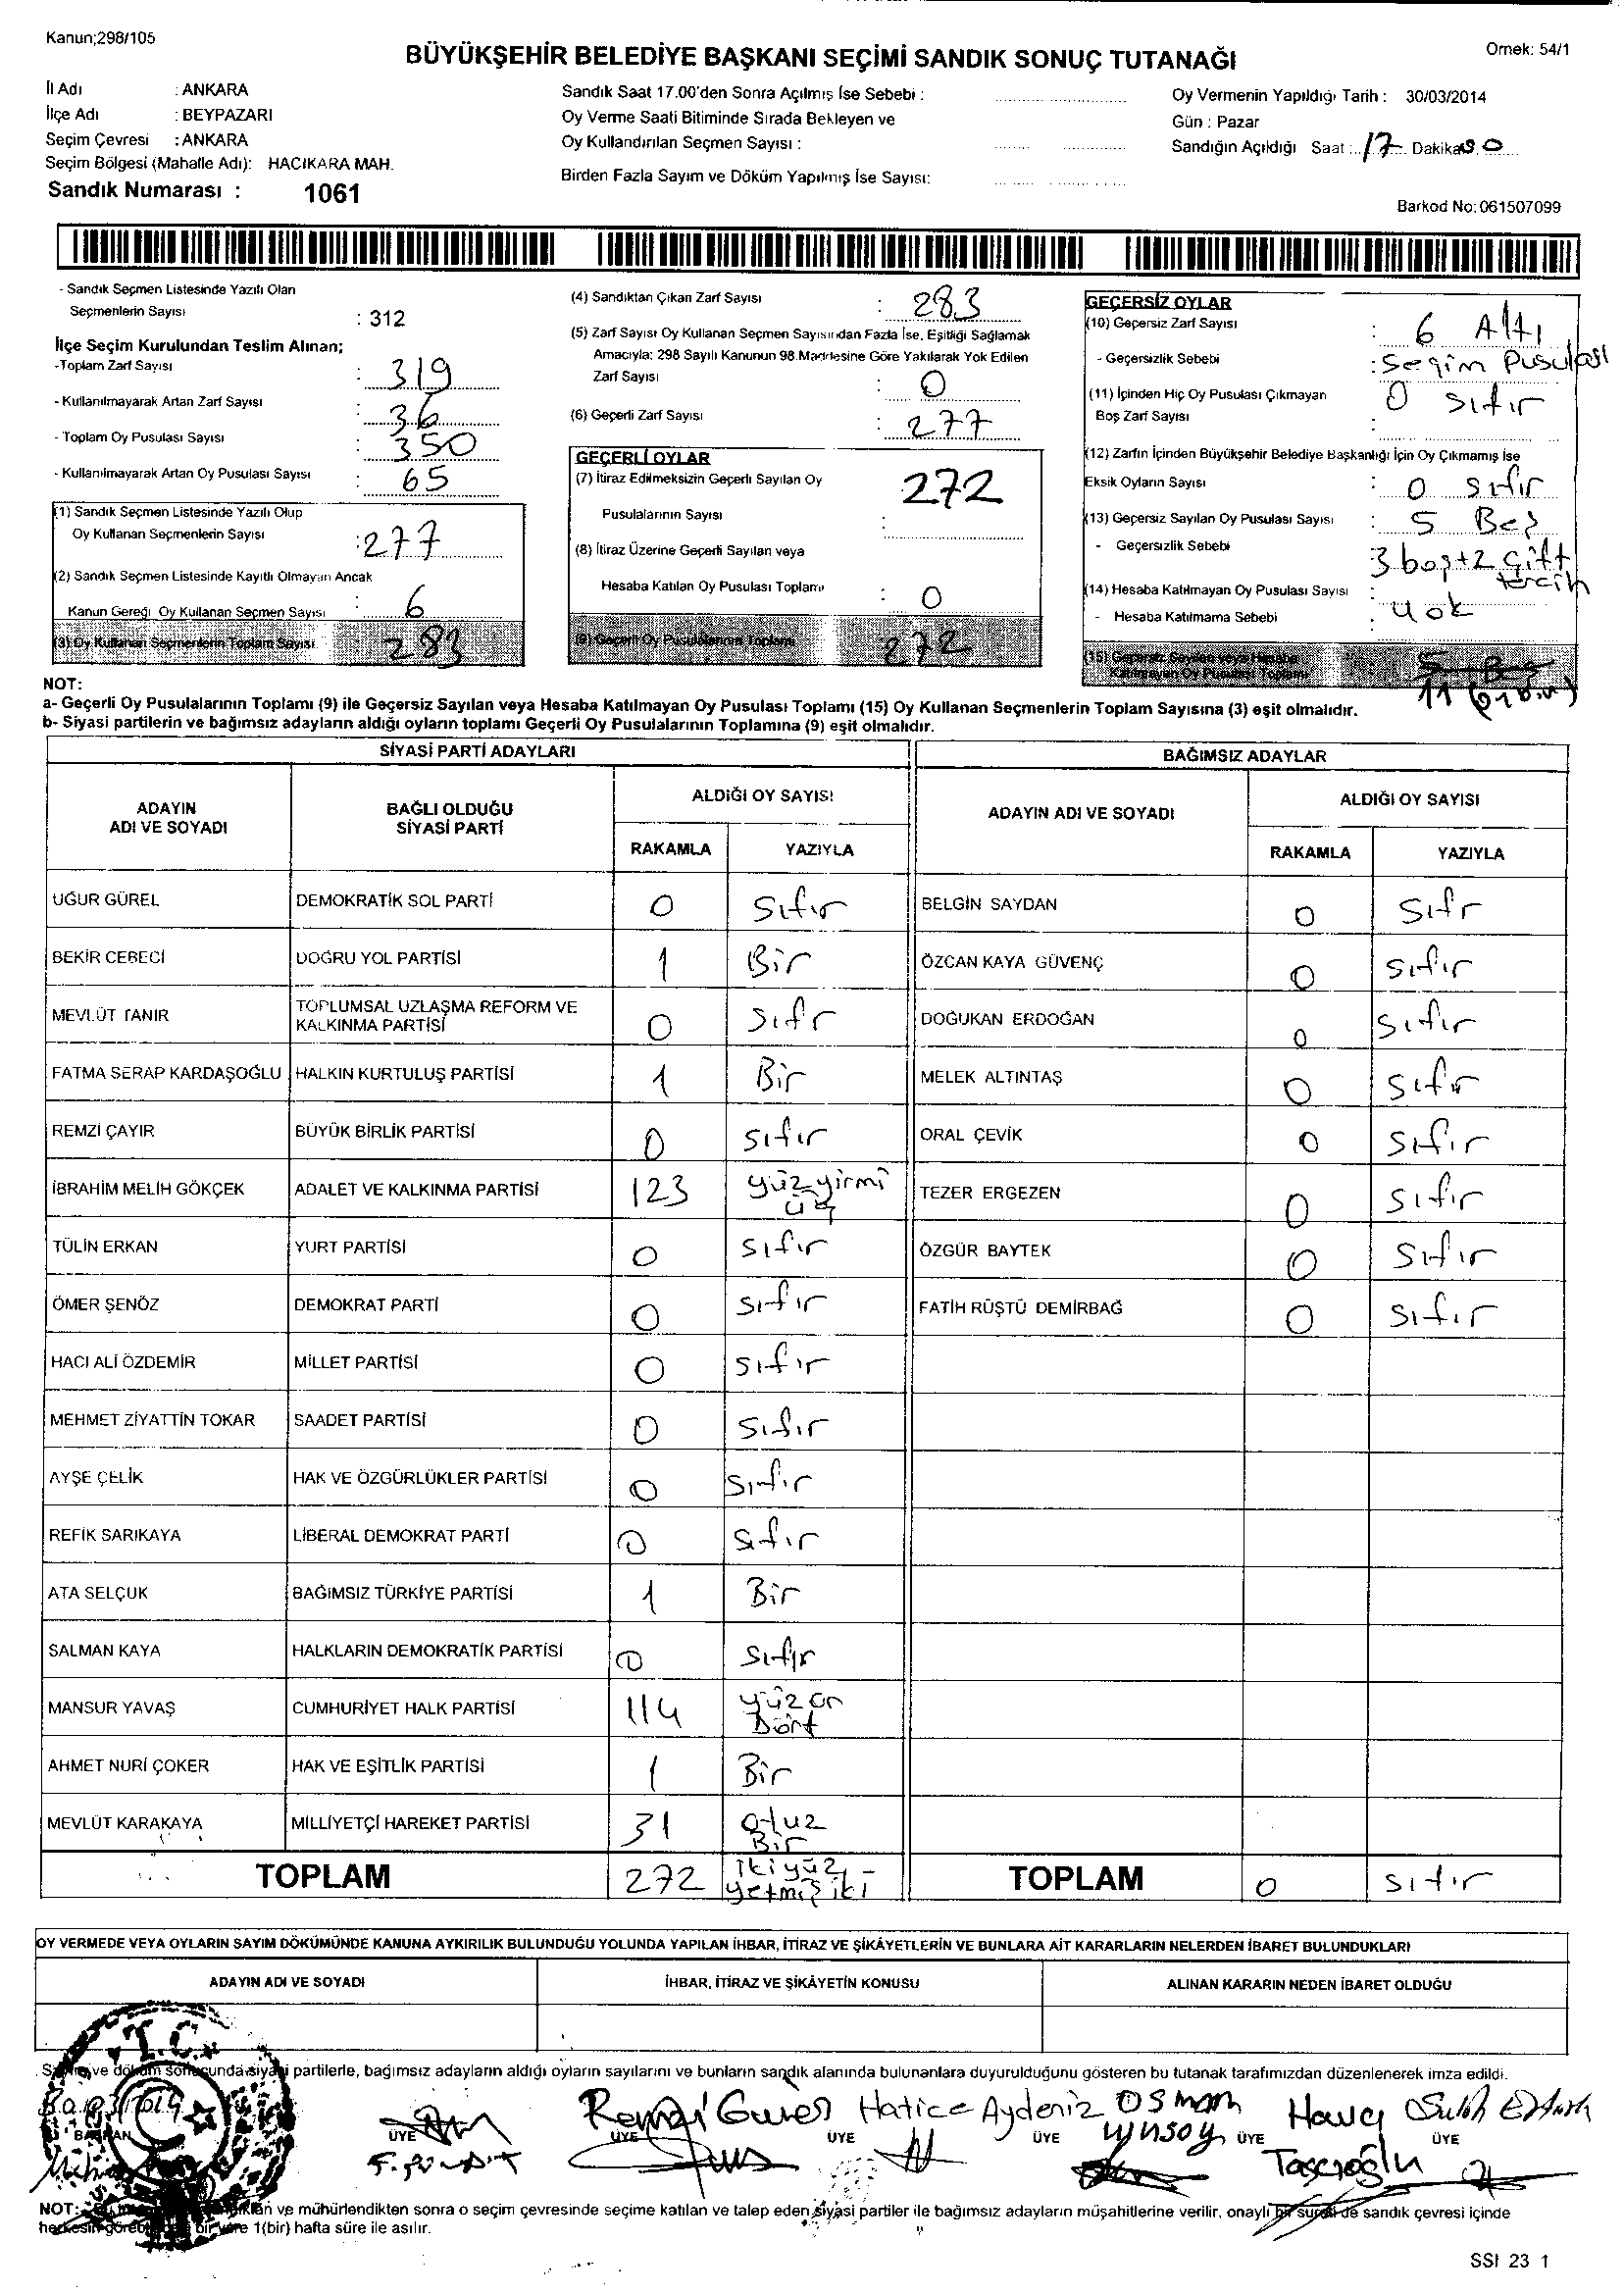 Kanun;298/105
Ornek: 54/1
BÜYÜKŞEHİR BELEDİYE BAŞKANI SEÇİMİ SANDIK SONUÇ TUTANAĞI
İl Adı : ANKARA
İlçe Adı : BEYPAZARI
Seçim Çevresi : ANKARA
Seçim Bölgesi (Mahalle Adı): HACIKARA MAH.
Sandık Numarası : 1061
Sandık Saat 17.00'den Sonra Açılmış İse Sebebi :
Oy Verme Saati Bitiminde Sırada Bekleyen ve
Oy Kullandırılan Seçmen Sayısı :
Birden Fazla Sayım ve Döküm Yapılmış İse Sayısı:
Oy Vermenin Yapıldığı Tarih : 30/03/2014
Gün : Pazar
Sandığın Açıldığı Saat : 17 Dakika
Barkod No: 061507099
- Sandık Seçmen Listesinde Yazılı Olan
Seçmenlerin Sayısı : 312
İlçe Seçim Kurulundan Teslim Alınan;
-Toplam Zarf Sayısı : 319
- Kullanılmayarak Artan Zarf Sayısı : 36
- Toplam Oy Pusulası Sayısı : 350
- Kullanılmayarak Artan Oy Pusulası Sayısı : 65
(1) Sandık Seçmen Listesinde Yazılı Olup
Oy Kullanan Seçmenlerin Sayısı : 277
(2) Sandık Seçmen Listesinde Kayıtlı Olmayan Ancak
Kanun Gereği Oy Kullanan Seçmen Sayısı : 6
(3) Oy Kullanan Seçmenlerin Toplam Sayısı 283
(4) Sandıktan Çıkan Zarf Sayısı : 283
(5) Zarf Sayısı Oy Kullanan Seçmen Sayısından Fazla İse, Eşitliği Sağlamak
Amacıyla; 298 Sayılı Kanunun 98.Maddesine Göre Yakılarak Yok Edilen
Zarf Sayısı : 0
(6) Geçerli Zarf Sayısı : 277
GEÇERLİ OYLAR
(7) İtiraz Edilmeksizin Geçerli Sayılan Oy 272
Pusulalarının Sayısı :
(8) İtiraz Üzerine Geçerli Sayılan veya
Hesaba Katılan Oy Pusulası Toplamı : 0
(9) Geçerli Oy Pusulalarının Toplamı 272
GEÇERSİZ OYLAR
(10) Geçersiz Zarf Sayısı : 6 Altı
- Geçersizlik Sebebi : Seçim Pusulası
(11) İçinden Hiç Oy Pusulası Çıkmayan 0 sıfır
Boş Zarf Sayısı :
(12) Zarfın İçinden Büyükşehir Belediye Başkanlığı İçin Oy Çıkmamış İse
Eksik Oyların Sayısı : 0 sıfır
(13) Geçersiz Sayılan Oy Pusulası Sayısı : 5 Beş
- Geçersizlik Sebebi 3 boş+2 çift
tercih
(14) Hesaba Katılmayan Oy Pusulası Sayısı : yok
- Hesaba Katılmama Sebebi :
(15) Geçersiz Sayılan veya Hesaba
Katılmayan Oy Pusulası Toplamı
11
NOT:
a- Geçerli Oy Pusulalarının Toplamı (9) ile Geçersiz Sayılan veya Hesaba Katılmayan Oy Pusulası Toplamı (15) Oy Kullanan Seçmenlerin Toplam Sayısına (3) eşit olmalıdır.
b- Siyasi partilerin ve bağımsız adayların aldığı oyların toplamı Geçerli Oy Pusulalarının Toplamına (9) eşit olmalıdır.
SİYASİ PARTİ ADAYLARI
ADAYIN ADI VE SOYADI
BAĞLI OLDUĞU SİYASİ PARTİ
ALDIĞI OY SAYISI
RAKAMLA YAZIYLA
UĞUR GÜREL DEMOKRATİK SOL PARTİ 0 Sıfır
BEKİR CEBECİ DOĞRU YOL PARTİSİ 1 Bir
MEVLÜT TANIR TOPLUMSAL UZLAŞMA REFORM VE KALKINMA PARTİSİ 0 Sıfr
FATMA SERAP KARDAŞOĞLU HALKIN KURTULUŞ PARTİSİ 1 Bir
REMZİ ÇAYIR BÜYÜK BİRLİK PARTİSİ 0 sıfır
İBRAHİM MELİH GÖKÇEK ADALET VE KALKINMA PARTİSİ 123 yüzyirmi üç
TÜLİN ERKAN YURT PARTİSİ 0 sıfır
ÖMER ŞENÖZ DEMOKRAT PARTİ 0 sıfır
HACI ALİ ÖZDEMİR MİLLET PARTİSİ 0 sıfır
MEHMET ZİYATTİN TOKAR SAADET PARTİSİ 0 sıfır
AYŞE ÇELİK HAK VE ÖZGÜRLÜKLER PARTİSİ 0 sıfır
REFİK SARIKAYA LİBERAL DEMOKRAT PARTİ 0 sıfır
ATA SELÇUK BAĞIMSIZ TÜRKİYE PARTİSİ 1 Bir
SALMAN KAYA HALKLARIN DEMOKRATİK PARTİSİ 0 sıfır
MANSUR YAVAŞ CUMHURİYET HALK PARTİSİ 114 yüz on Dört
AHMET NURİ ÇOKER HAK VE EŞİTLİK PARTİSİ 1 Bir
MEVLÜT KARAKAYA MİLLİYETÇİ HAREKET PARTİSİ 31 otuz Bir
TOPLAM 272 ikiyüz yetmiş iki
BAĞIMSIZ ADAYLAR
ADAYIN ADI VE SOYADI
ALDIĞI OY SAYISI
RAKAMLA YAZIYLA
BELGİN SAYDAN 0 Sıfr
ÖZCAN KAYA GÜVENÇ 0 sıfır
DOĞUKAN ERDOĞAN 0 sıfır
MELEK ALTINTAŞ 0 sıfır
ORAL ÇEVİK 0 sıfır
TEZER ERGEZEN 0 sıfır
ÖZGÜR BAYTEK 0 sıfır
FATİH RÜŞTÜ DEMİRBAĞ 0 sıfır
TOPLAM 0 sıfır
OY VERMEDE VEYA OYLARIN SAYIM DÖKÜMÜNDE KANUNA AYKIRILIK BULUNDUĞU YOLUNDA YAPILAN İHBAR, İTİRAZ VE ŞİKÂYETLERİN VE BUNLARA AİT KARARLARIN NELERDEN İBARET BULUNDUKLARI
ADAYIN ADI VE SOYADI İHBAR, İTİRAZ VE ŞİKÂYETİN KONUSU ALINAN KARARIN NEDEN İBARET OLDUĞU
T.C.
ve döküm sonucunda siyasi partilerle, bağımsız adayların aldığı oyların sayılarını ve bunların sandık alanında bulunanlara duyurulduğunu gösteren bu tutanak tarafımızdan düzenlenerek imza edildi.
Hatice Aydeniz Osman Havva
BAŞKAN ÜYE ÜYE ÜYE ÜYE ÜYE ÜYE
Taşcıoğlu
NOT: ve mühürlendikten sonra o seçim çevresinde seçime katılan ve talep eden siyasi partiler ile bağımsız adayların müşahitlerine verilir, onaylı bir sureti de sandık çevresi içinde
herkesin bir yere 1(bir) hafta süre ile asılır.
SSI 23 1